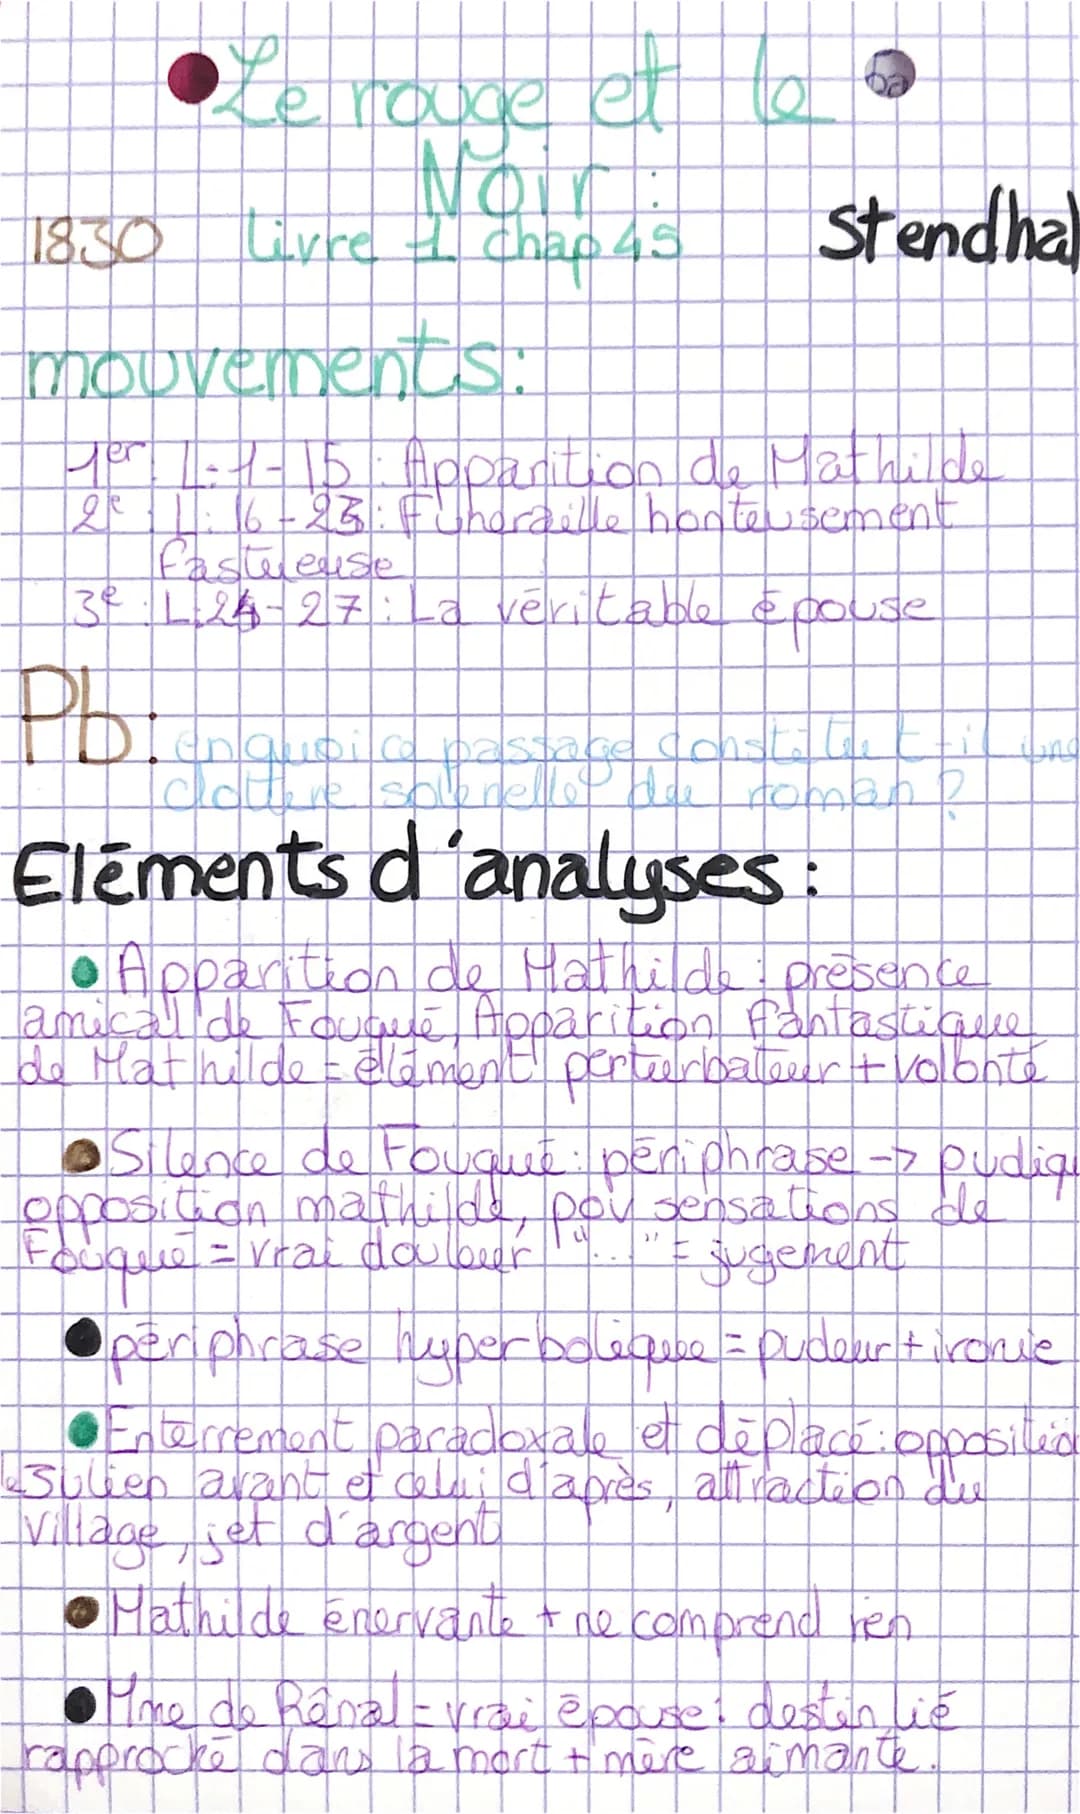 Le rouge et le
Noir :
1830 Livre 1 chap 45 Stendhal
mouvements:
1er L: 1-15 : Apparition de Mathilde
2e : L: 16-23 : Funéraille honteusement
fastueuse
3e : L: 24-27 : La véritable épouse
Pb: en quoi ce passage constitut-il une
cloture solenelle du roman ?
Eléments d'analyses :
Apparition de Mathilde : présence
amical de Fouqué, Apparition fantastique
de Mathilde = élément perturbateur + volonté
Silence de Fouqué : périphrase -> pudiqu
opposition mathilde, peu sensations de
Fouqué = vrai douleur "..." = jugement
périphrase hyperbolique = pudeur + ironie
Enterrement paradoxale et déplacé : oppositio
le Julien avant et celui d'après, attraction du
village, jet d'argent
Mathilde énervante + ne comprend rien
Mme de Rênal = vrai épouse : destin lié
rapproché dans la mort + mère aimante.